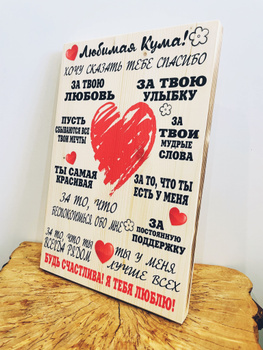 Любимая Кума!
ХОЧУ СКАЗАТЬ ТЕБЕ СПАСИБО
ЗА ТВОЮ
ЛЮБОВЬ
ЗА ТВОЮ
УЛЫБКУ
ПУСТЬ
СБЫВАЮТСЯ ВСЕ
ТВОИ МЕЧТЫ
ЗА
ТВОИ
МУДРЫЕ
СЛОВА
ТЫ САМАЯ
КРАСИВАЯ
ЗА ТО, ЧТО ТЫ
ЕСТЬ У МЕНЯ
ЗА ТО, ЧТО
БЕСПОКОИШЬСЯ ОБО МНЕ
ЗА
ПОСТОЯННУЮ
ПОДДЕРЖКУ
ЗА ТО, ЧТО ТЫ
ВСЕГДА РЯДОМ
ТЫ У МЕНЯ
ЛУЧШЕ ВСЕХ
БУДЬ СЧАСТЛИВА! Я ТЕБЯ ЛЮБЛЮ!